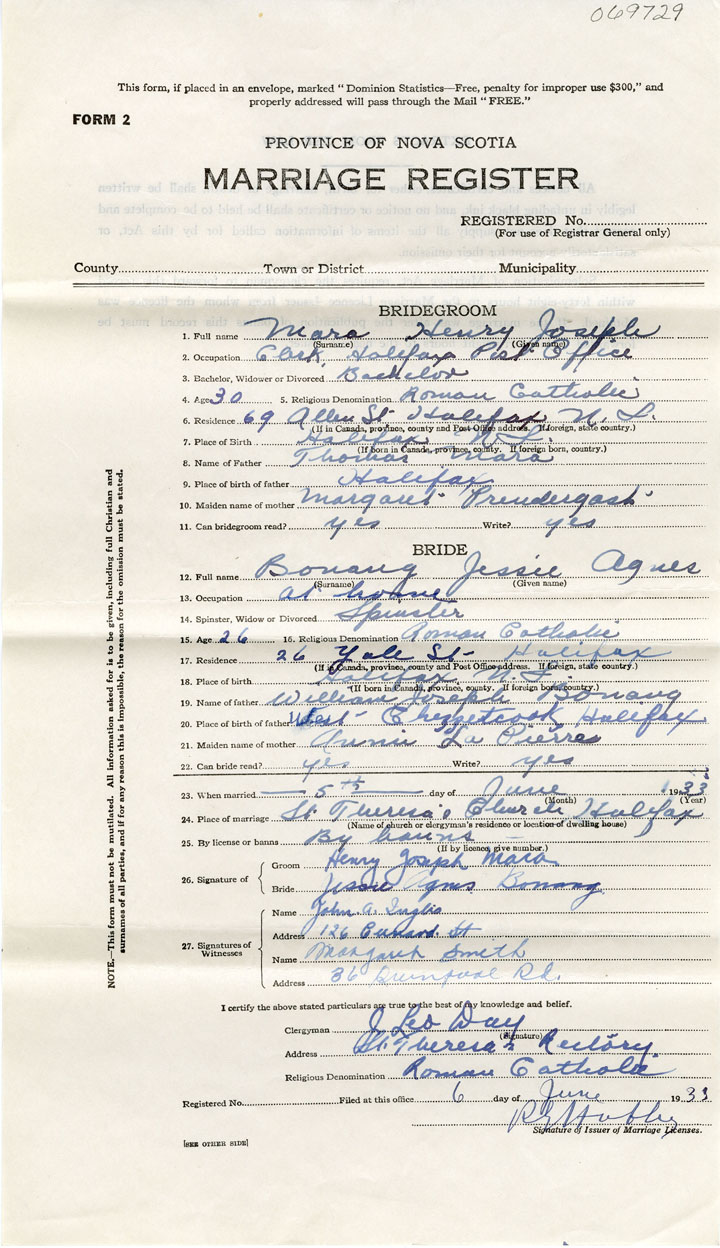 069729
This form, if placed in an envelope, marked "Dominion Statistics—Free, penalty for improper use $300," and
properly addressed will pass through the Mail "FREE."
FORM 2
PROVINCE OF NOVA SCOTIA
MARRIAGE REGISTER
REGISTERED No.
(For use of Registrar General only)
County Town or District Municipality
BRIDEGROOM
1. Full name Mara Henry Joseph
(Surname) (Given name)
2. Occupation Clerk, Halifax Post Office
3. Bachelor, Widower or Divorced Bachelor
4. Age 30 5. Religious Denomination Roman Catholic
6. Residence 69 Allen St Halifax N. S.
(If in Canada, province, county and Post Office address. If foreign, state country.)
7. Place of Birth Halifax N. S.
(If born in Canada, province, county. If foreign born, country.)
8. Name of Father Thomas Mara
9. Place of birth of father Halifax
10. Maiden name of mother Margaret Prendergast
11. Can bridegroom read? yes Write? yes
BRIDE
12. Full name Bonang Jessie Agnes
(Surname) (Given name)
13. Occupation at home
14. Spinster, Widow or Divorced Spinster
15. Age 26 16. Religious Denomination Roman Catholic
17. Residence 26 Yale St- Halifax
(If in Canada, province, county and Post Office address. If foreign, state country.)
18. Place of birth Halifax N. S.
(If born in Canada, province, county. If foreign born, country.)
19. Name of father William Joseph Bonang
20. Place of birth of father West Chezzetcook Halifax
21. Maiden name of mother Annie La Pierre
22. Can bride read? yes Write? yes
23. When married 5th day of June 1933
(Month) (Year)
24. Place of marriage St Theresa's Church Halifax
(Name of church or clergyman's residence or location of dwelling house)
25. By license or banns By banns
(If by licence, give number.)
26. Signature of Groom Henry Joseph Mara
Bride Jessie Agnes Bonang
27. Signatures of Witnesses
Name John A. Inglis
Address 126 Cunard. St
Name Margaret Smith
Address 36 Quinpool Rd.
I certify the above stated particulars are true to the best of my knowledge and belief.
Clergyman J Leo Day
(Signature)
Address St. Theresa's Rectory.
Religious Denomination Roman Catholic
Registered No. Filed at this office 6 day of June 1933
Signature of Issuer of Marriage Licenses.
[SEE OTHER SIDE]
NOTE.—This form must not be mutilated. All information asked for is to be given, including full Christian and
surnames of all parties, and if for any reason this is impossible, the reason for the omission must be stated.